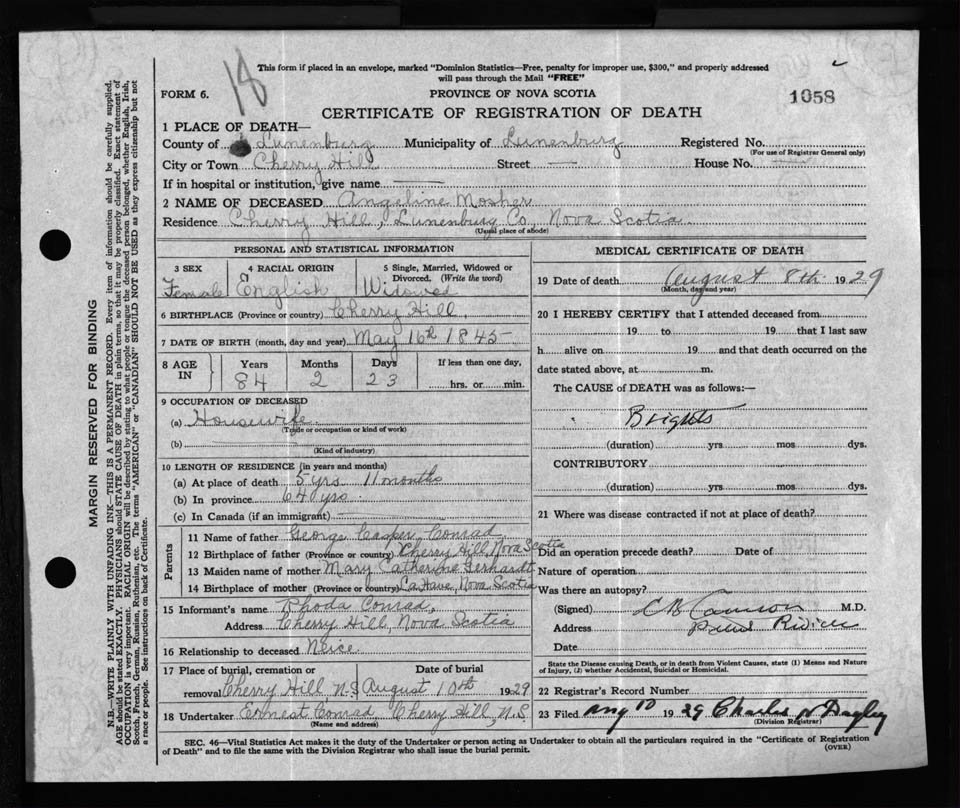 18
This form if placed in an envelope, marked "Dominion Statistics—Free, penalty for improper use, $300," and properly addressed
will pass through the Mail "FREE"
FORM 6.
PROVINCE OF NOVA SCOTIA
1058
CERTIFICATE OF REGISTRATION OF DEATH
1 PLACE OF DEATH—
County of Lunenburg Municipality of Lunenburg Registered No.
(For use of Registrar General only)
City or Town Cherry Hill Street — House No.
If in hospital or institution, give name —
2 NAME OF DECEASED Angeline Mosher
Residence Cherry Hill, Lunenburg Co. Nova Scotia
(Usual place of abode)
PERSONAL AND STATISTICAL INFORMATION
3 SEX Female
4 RACIAL ORIGIN English
5 Single, Married, Widowed or Divorced. (Write the word)
Widowed
6 BIRTHPLACE (Province or country) Cherry Hill,
7 DATE OF BIRTH (month, day and year) May 16th 1845
8 AGE IN Years 84 Months 2 Days 23 If less than one day, hrs. or min.
9 OCCUPATION OF DECEASED
(a) Housewife
(Trade or occupation or kind of work)
(b)
(Kind of industry)
10 LENGTH OF RESIDENCE (in years and months)
(a) At place of death 5 yrs 11 months
(b) In province 64 yrs.
(c) In Canada (if an immigrant) —
Parents
11 Name of father George Casper Conrad
12 Birthplace of father (Province or country) Cherry Hill, Nova Scotia
13 Maiden name of mother Mary Catherine Gerhardt
14 Birthplace of mother (Province or country) LaHave, Nova Scotia
15 Informant's name Rhoda Conrad,
Address Cherry Hill, Nova Scotia
16 Relationship to deceased Neice
17 Place of burial, cremation or removal Cherry Hill N.S. Date of burial August 10th 1929
18 Undertaker Ernest Conrad Cherry Hill, N.S.
(Name and address)
MEDICAL CERTIFICATE OF DEATH
19 Date of death August 8th 1929
(Month, day and year)
20 I HEREBY CERTIFY that I attended deceased from
19 to 19 that I last saw
h alive on 19 and that death occurred on the
date stated above, at m.
The CAUSE of DEATH was as follows:—
Brights
(duration) yrs mos dys.
CONTRIBUTORY
(duration) yrs mos dys.
21 Where was disease contracted if not at place of death?
Did an operation precede death? Date of
Nature of operation
Was there an autopsy?
(Signed) M.D.
Address
Date
State the Disease causing Death, or in death from Violent Causes, state (1) Means and Nature
of Injury, (2) whether Accidental, Suicidal or Homicidal.
22 Registrar's Record Number
23 Filed Aug 10 1929 Charles
(Division Registrar)
SEC. 46—Vital Statistics Act makes it the duty of the Undertaker or person acting as Undertaker to obtain all the particulars required in the "Certificate of Registration
of Death" and to file the same with the Division Registrar who shall issue the burial permit. (OVER)
MARGIN RESERVED FOR BINDING
N.B.—WRITE PLAINLY WITH UNFADING INK—THIS IS A PERMANENT RECORD. Every item of information should be carefully supplied.
AGE should be stated EXACTLY. PHYSICIANS should STATE CAUSE OF DEATH in plain terms, so that it may be properly classified. Exact statement of
OCCUPATION is very important. RACIAL ORIGIN will be described by stating to what people or tongue the deceased person belonged, whether English, Irish,
Scotch, French, German, Russian, Ruthenian, etc. The terms "AMERICAN" or "CANADIAN" SHOULD NOT BE USED as they express citizenship but not
a race or people. See instructions on back of Certificate.